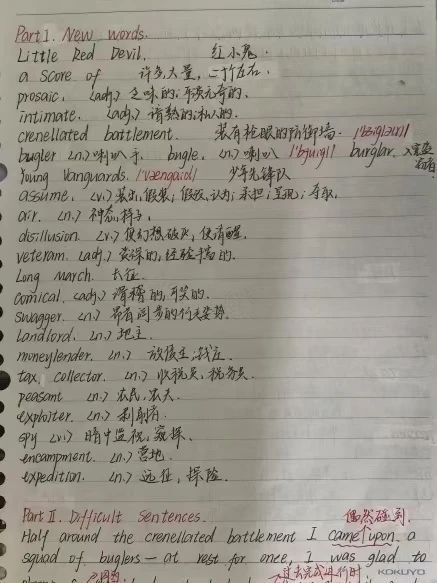 Part I. New words.
Little Red Devil. 红小鬼.
a score of 许多,大量,二十左右.
prosaic. (adj.) 乏味的;平淡无奇的.
intimate. (adj.) 亲热的;私人的.
crenellated battlement. 装有枪眼的防御墙.
bugler (n.) 喇叭手. bugle. (n.) 喇叭 burglar. 入室盗窃者
Young Vanguards. 少年先锋队
assume. (v.) 装出,假装;假设,认为;承担;呈现;夺取.
air. (n.) 神态,样子.
disillusion. (v.) 使幻想破灭,使清醒.
veteran. (adj.) 资深的;经验丰富的.
Long March. 长征.
comical. (adj.) 滑稽的,可笑的.
swagger. (n.) 昂首阔步的行走姿势.
landlord. (n.) 地主.
moneylender. (n.) 放债主;钱庄.
tax collector. (n.) 收税员,税务员.
peasant (n.) 农民,农夫.
exploiter. (n.) 剥削者.
spy (vi.) 暗中监视,窥探.
encampment. (n.) 营地.
expedition. (n.) 远征,探险.
Part II. Difficult Sentences. 偶然碰到.
Half around the crenellated battlement I came upon a
squad of buglers — at rest for once, I was glad to
过去完成进行时.
KOKUYO